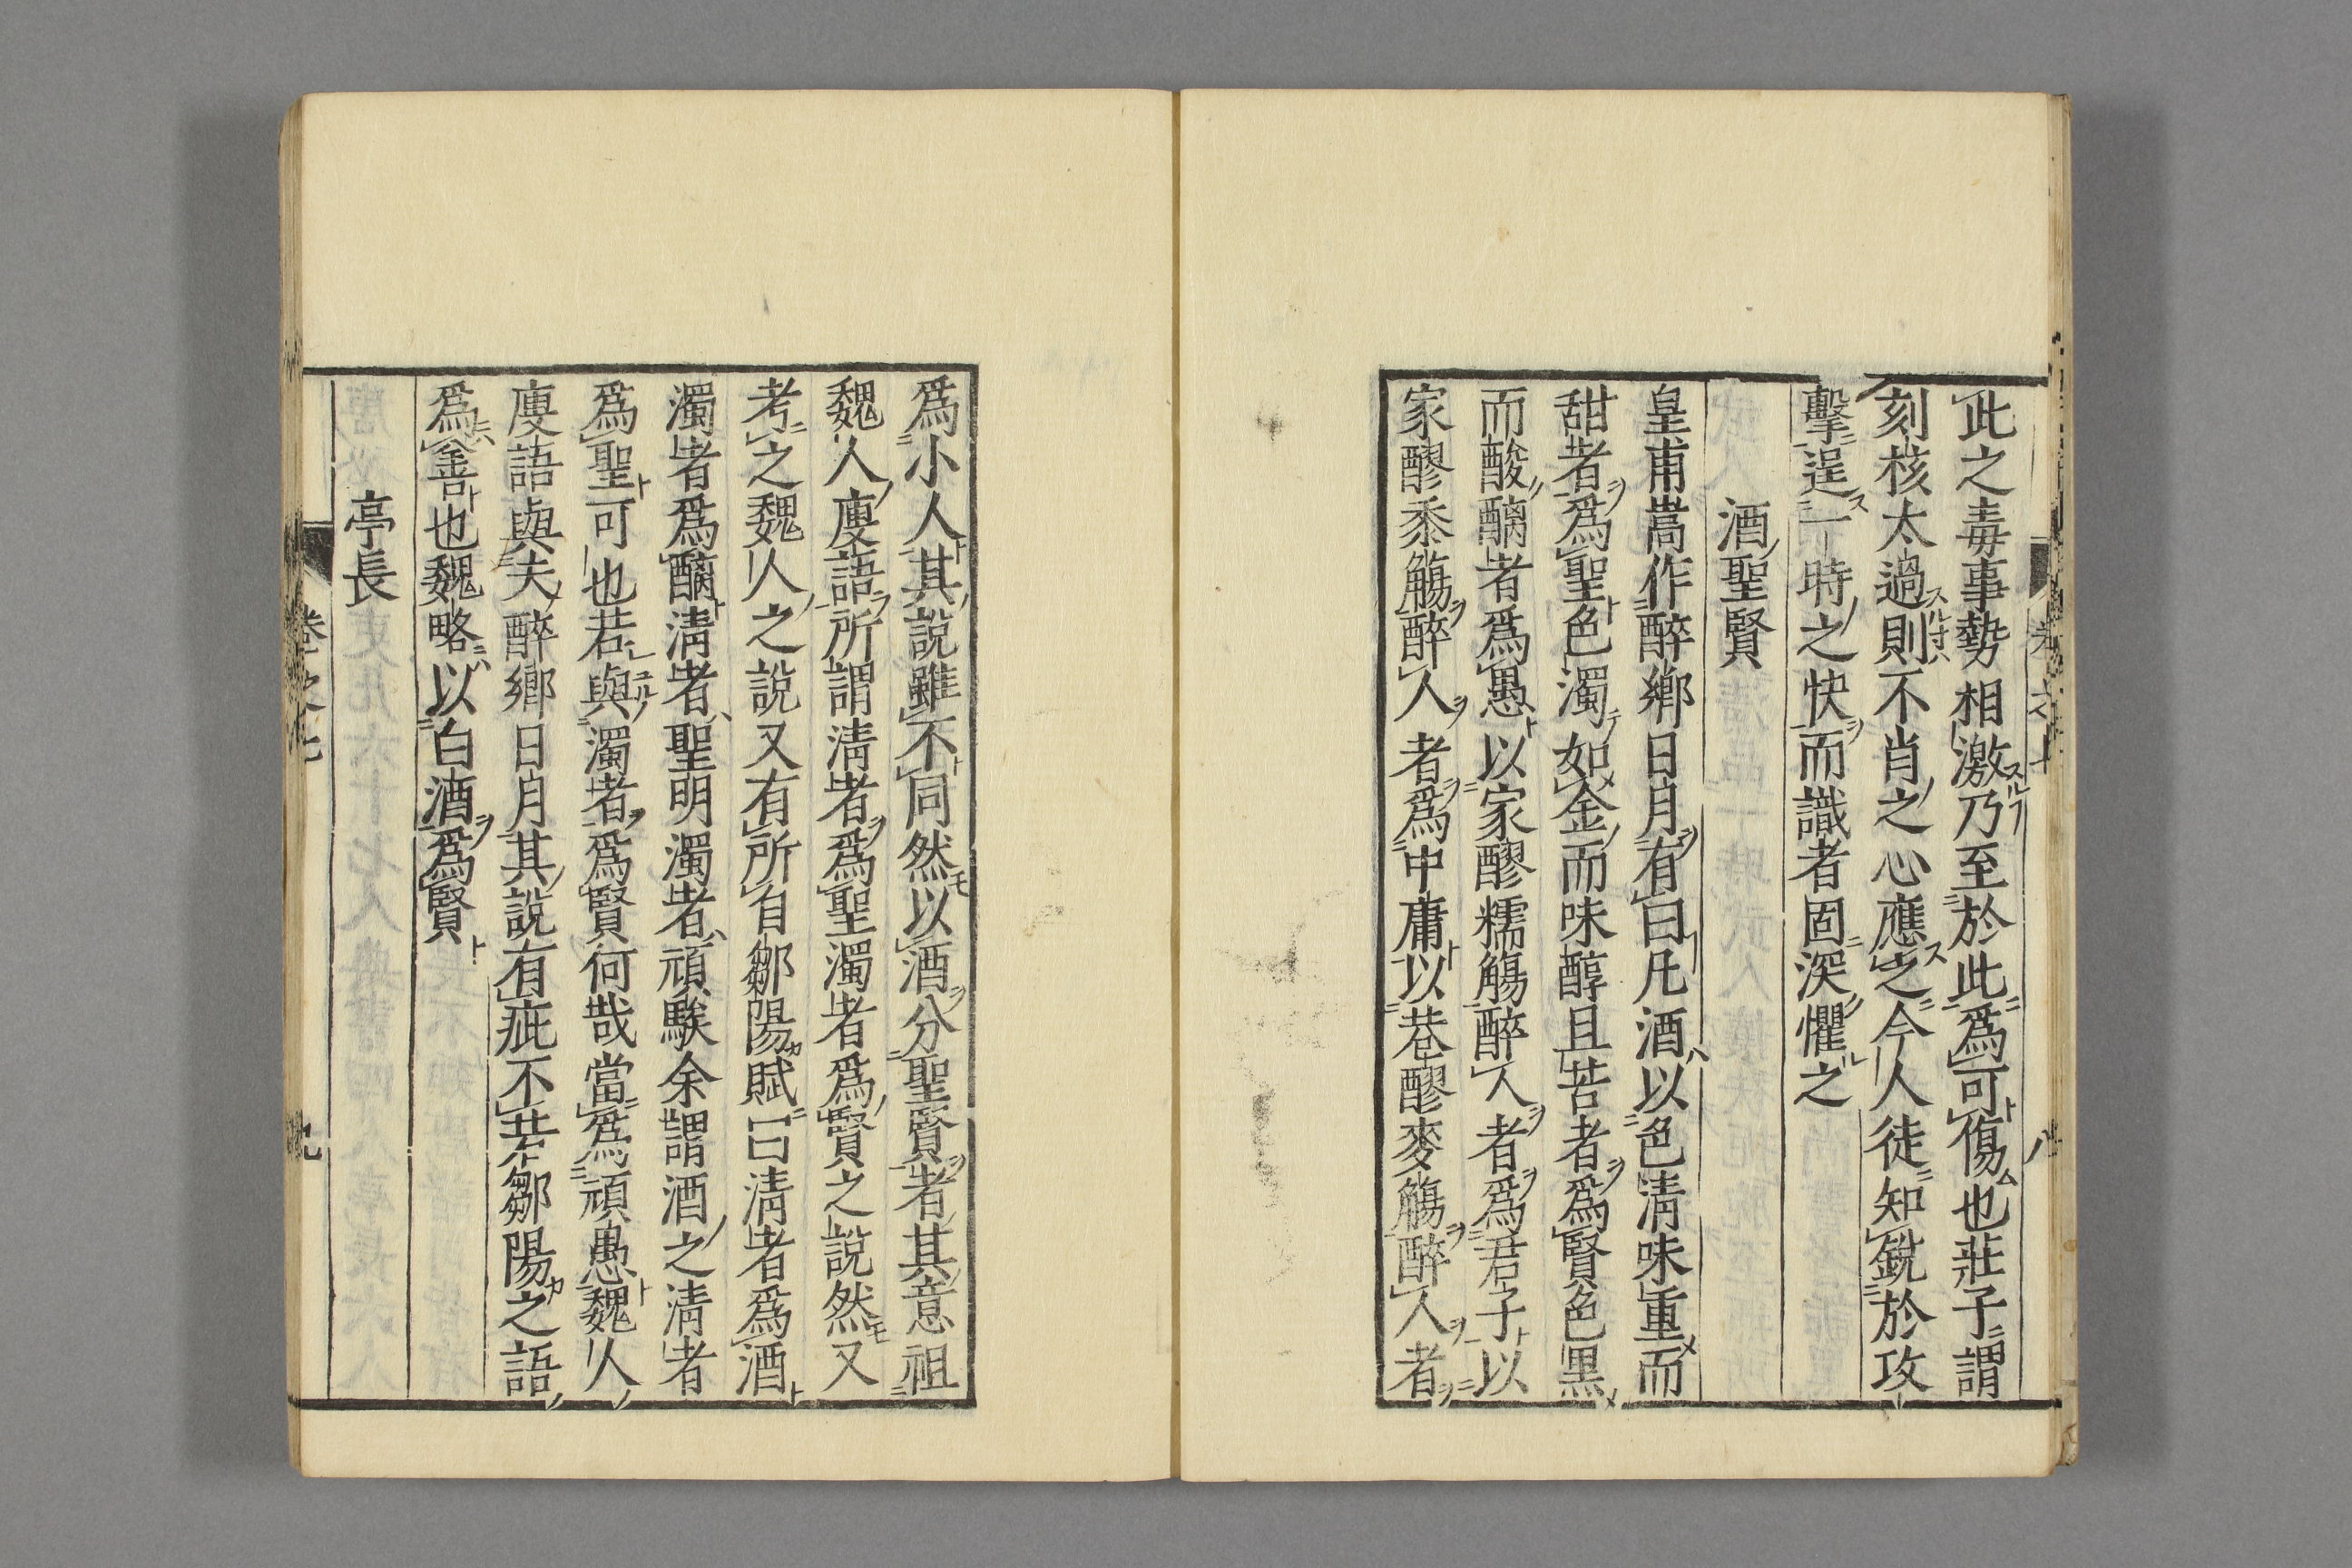 此之毒事勢相激乃至於此爲可傷也莊子謂
刻核太過則不肖之心應之今人徒知銳於攻
擊逞一時之快而識者固深懼之
酒聖賢
皇甫嵩作醉鄉日月有曰凡酒以色清味重而
甜者爲聖色濁如金而味醇且苦者爲賢色黑
而酸醨者爲愚以家醪糯觴醉人者爲君子以
家醪黍觴醉人者爲中庸以巷醪麥觴醉人者
爲小人其說雖不同然以酒分聖賢者其意祖
魏人廋語所謂清者爲聖濁者爲賢之說然又
考之魏人之說又有所自鄒陽賦曰清者爲酒
濁者爲醨清者聖明濁者頑騃余謂酒之清者
爲聖可也若與濁者爲賢何哉當爲頑愚魏人
廋語與夫醉鄉日月其說有疵不若鄒陽之語
爲善也魏略以白酒爲賢
亭長
卷之七
九